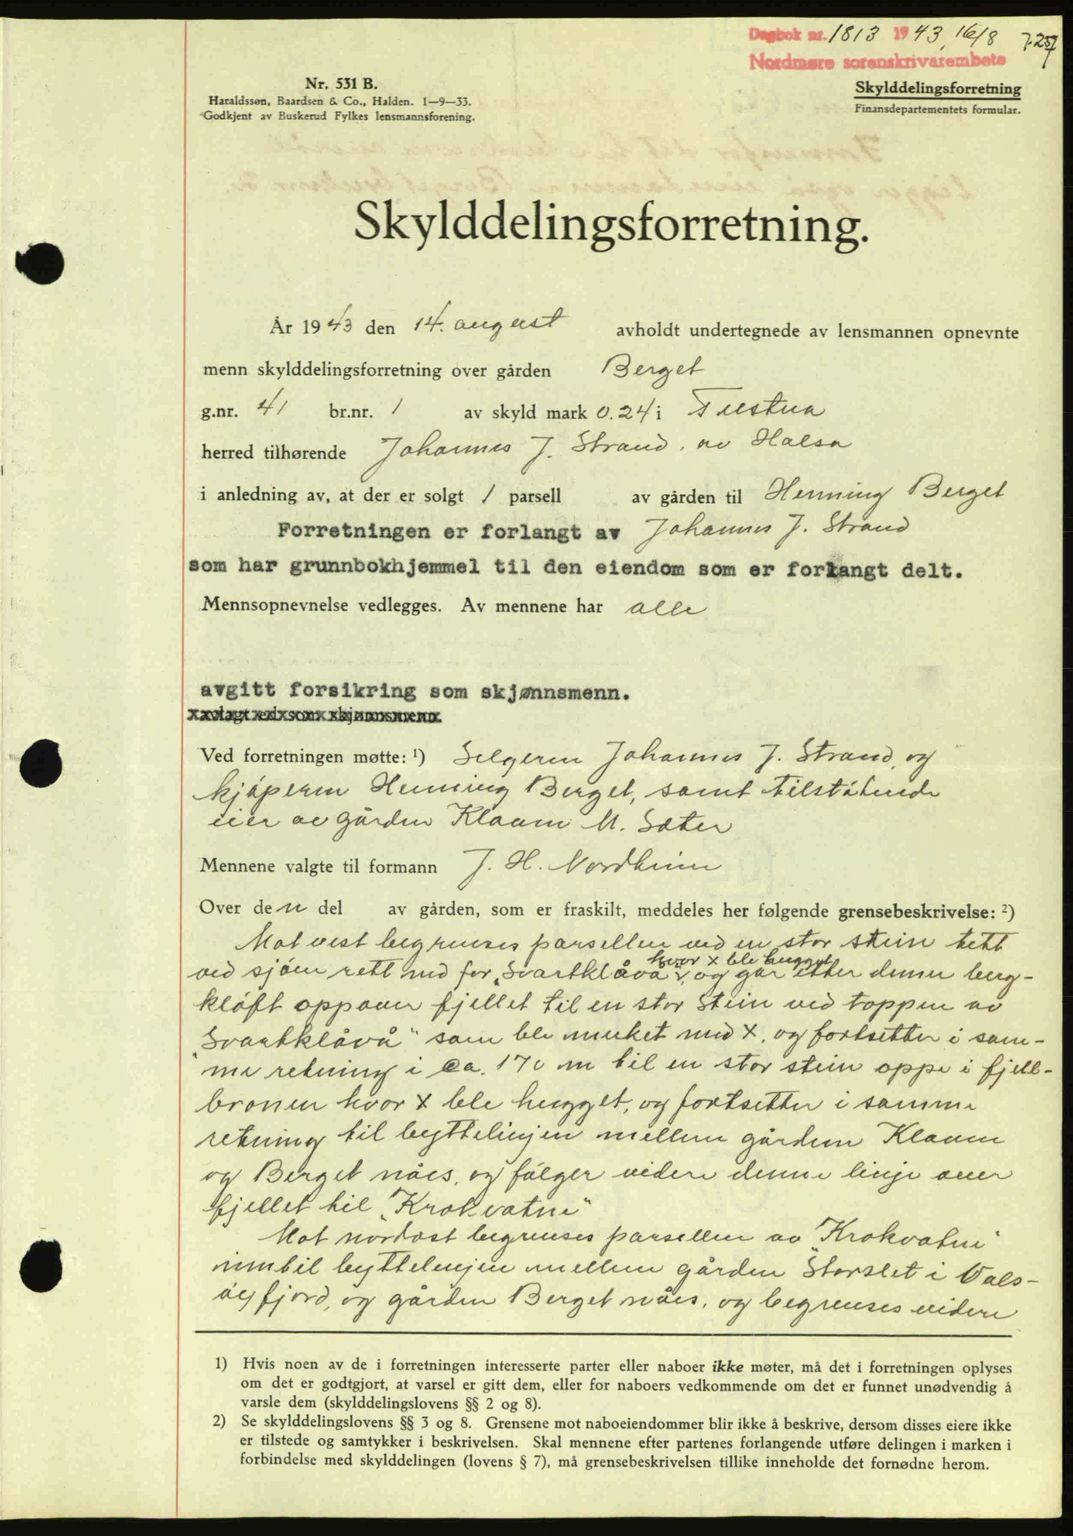 Dagbok nr. 1813 1943, 16/8
Nordmøre sorenskrivarembete
Nr. 531 B.
Haraldssøn, Baardsen & Co., Halden. 1—9—33.
Godkjent av Buskerud Fylkes lensmannsforening.
Skylddelingsforretning
Finansdepartementets formular.
Skylddelingsforretning.
År 1943 den 14. august avholdt undertegnede av lensmannen opnevnte
menn skylddelingsforretning over gården Berget
g.nr. 41 br.nr. 1 av skyld mark 0.24 i Tustna
herred tilhørende Johannes J. Strand, av Halsa
i anledning av, at der er solgt 1 parsell av gården til Henning Berget
Forretningen er forlangt av Johannes J. Strand
som har grunnbokhjemmel til den eiendom som er forlangt delt.
Mennsopnevnelse vedlegges. Av mennene har alle
avgitt forsikring som skjønnsmenn.
Ved forretningen møtte: ¹) Selgeren Johannes J. Strand, og
kjøperen Henning Berget, samt tilstøtende
eier av gården Klaven M. Sæter
Mennene valgte til formann J. H. Nordheim
Over den del av gården, som er fraskilt, meddeles her følgende grensebeskrivelse: ²)
Mot vest begrenses parsellen ved en stor stein tett
hvor x ble hugget
ved sjøen rett ned for "Svartklåvå", og går etter denne berg-
kløft oppover fjellet til en stor stein ved toppen av
"Svartklåvå" som ble merket med X, og fortsetter i sam-
me retning i ca. 170 m til en stor stein oppe i fjell-
bronen hvor X ble hugget, og fortsetter i samme
retning til byttelinjen mellem gårdene Klaven
og Berget nåes, og følger videre denne linje over
fjellet til "Krokvatne"
Mot nordøst begrenses parsellen av "Krokvatne"
inntil byttelinjen mellem gården Storslet i Vals-
øyfjord, og gården Berget nåes, og begrenses videre
1) Hvis noen av de i forretningen interesserte parter eller naboer ikke møter, må det i forretningen oplyses
om det er godtgjort, at varsel er gitt dem, eller for naboers vedkommende om det er funnet unødvendig å
varsle dem (skylddelingslovens §§ 2 og 8).
2) Se skylddelingslovens §§ 3 og 8. Grensene mot naboeiendommer blir ikke å beskrive, dersom disses eiere ikke
er tilstede og samtykker i beskrivelsen. Skal mennene efter partenes forlangende utføre delingen i marken i
forbindelse med skylddelingen (lovens § 7), må grensebeskrivelsen tillike inneholde det fornødne herom.